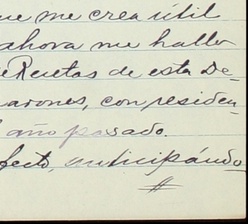 ue me crea útil
ahora me hallo
e Rentas de esta De-
arones, con residen-
año pasado.
fecto, anticipándo-